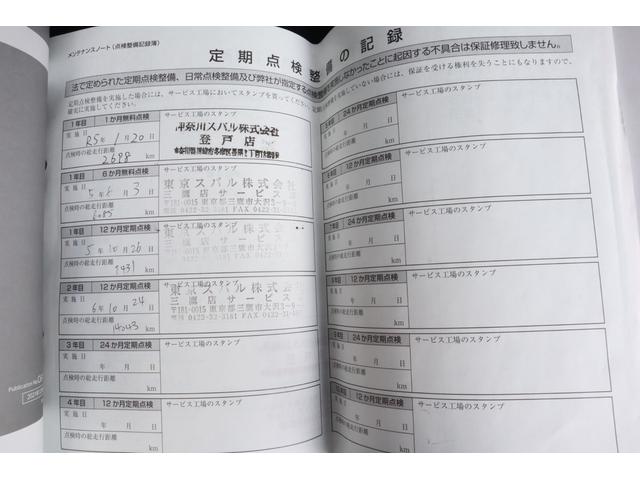 メンテナンスノート(点検整備記録簿)
定期点検整備の記録
法で定められた定期点検整備、日常点検整備及び弊社が指定する点検整備を実施しなかったことに起因する不具合は保証修理致しません。
定期点検整備を実施した場合には、サービス工場においてスタンプを
確実に実施してください。
していない場合は、保証を受ける権利を失うことにもなりますので、
1年目 1か月無料点検
サービス工場のスタンプ
実施日
R5年1月20日
点検時の総走行距離
2698 km
神奈川スバル株式会社
登戸店
1年目 6か月無料点検
サービス工場のスタンプ
実施日
5年6月3日
点検時の総走行距離
km
東京スバル株式会社
三鷹店サービス
〒181-0015 東京都三鷹市大沢3-9-
電話 0422-32-3181 FAX 0422-31-
1年目 12か月定期点検
サービス工場のスタンプ
実施日
5年10月26日
点検時の総走行距離
9431 km
東京スバル株式会社
三鷹店サービス
〒181-0015 東京都三鷹市大沢3-9-
電話 0422-32-3181 FAX 0422-31-
2年目 12か月定期点検
サービス工場のスタンプ
実施日
6年10月24日
点検時の総走行距離
14043 km
東京スバル株式会社
三鷹店サービス
〒181-0015 東京都三鷹市大沢3-9-
電話 0422-32-3181 FAX 0422-31-
3年目 24か月定期点検
サービス工場のスタンプ
実施日
年 月 日
点検時の総走行距離
km
4年目 12か月定期点検
サービス工場のスタンプ
実施日
年 月 日
点検時の総走行距離
km
24か月定期点検
サービス工場のスタンプ
年 月 日
点検時の総走行距離
km
12か月定期点検
サービス工場のスタンプ
年 月 日
点検時の総走行距離
km
24か月定期点検
サービス工場のスタンプ
年 月 日
点検時の総走行距離
km
12か月定期点検
サービス工場のスタンプ
年 月 日
点検時の総走行距離
km
24か月定期点検
サービス工場のスタンプ
年 月 日
点検時の総走行距離
km
12か月定期点検
サービス工場のスタンプ
年 月 日
点検時の総走行距離
km